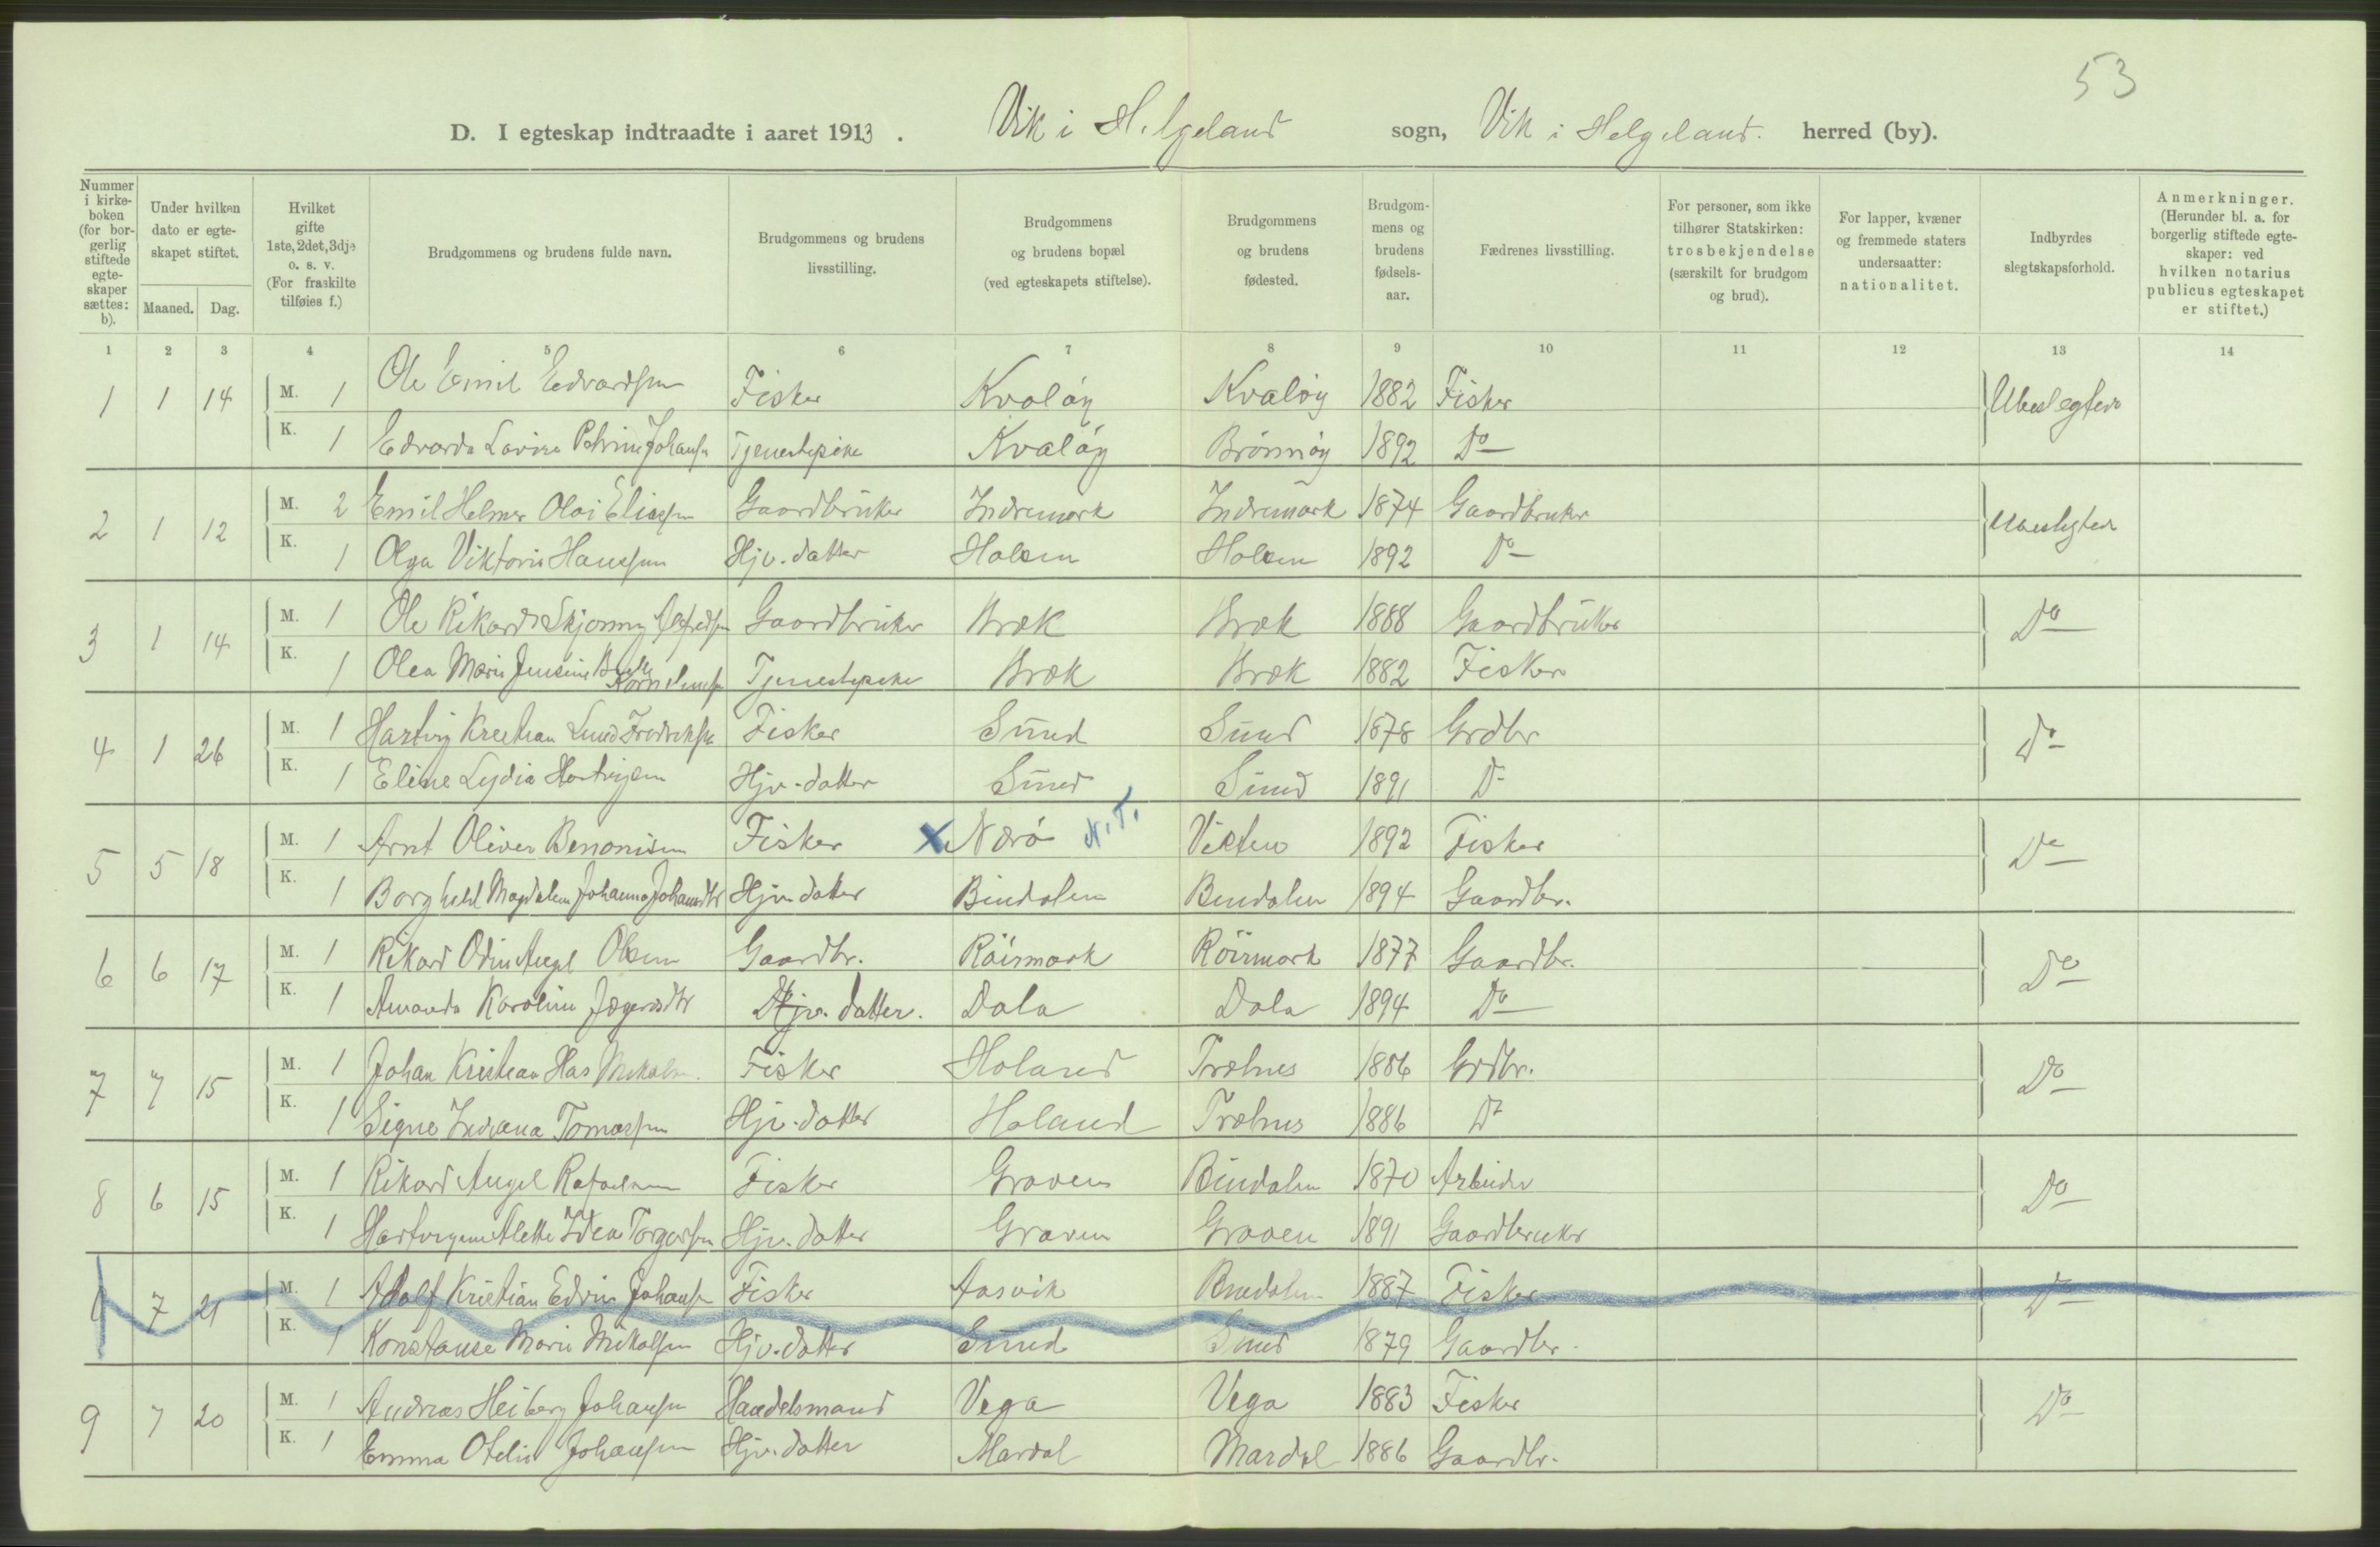 53
D. I egteskap indtraadte i aaret 1913. Vik i Helgeland sogn, Vik i Helgeland. herred (by).
Nummer i kirke-boken (for bor-gerlig stiftede egte-skaper sættes: b).
Under hvilken dato er egte-skapet stiftet.
Maaned. Dag.
Hvilket gifte 1ste, 2det, 3dje o. s. v. (For fraskilte tilføies f.)
Brudgommens og brudens fulde navn.
Brudgommens og brudens livsstilling.
Brudgommens og brudens bopæl (ved egteskapets stiftelse).
Brudgommens og brudens fødested.
Brudgom-mens og brudens fødsels-aar.
Fædrenes livsstilling.
For personer, som ikke tilhører Statskirken: trosbekjendelse (særskilt for brudgom og brud).
For lapper, kvæner og fremmede staters undersaatter: nationalitet.
Indbyrdes slegtskapsforhold.
Anmerkninger. (Herunder bl. a. for borgerlig stiftede egte-skaper: ved hvilken notarius publicus egteskapet er stiftet.)
1 2 3 4 5 6 7 8 9 10 11 12 13 14
1 1 14 M. 1 Ole Emil Edvardsen Fisker Kvaløy Kvaløy 1882 Fisker Ubeslegtede
K. 1 Edvarda Lovise Petrine Johansen Tjenestepike Kvaløy Brønnøy 1892 Do
2 1 12 M. 2 Emil Helmer Olai Eliassen Gaardbruker Indremark Indremark 1874 Gaardbruker Ubeslegtede
K. 1 Olga Viktoria Hanssen Hjv. datter Holm Holm 1892 Do
3 1 14 M. 1 Ole Rikard Gaardbruker Bræk Bræk 1888 Gaardbruker Do
K. 1 Olea Marie Jensine Kornelius­sen Tjenestepike Bræk Bræk 1882 Fisker
4 1 26 M. 1 Hartvig Kristian Lund Fredriksen Fisker Sund Sund 1878 Grdbr Do
K. 1 Eline Lydia Hartvigsen Hjv. datter Sund Sund 1891 Do
5 5 18 M. 1 Arnt Oliver Benonisen Fisker x Nærø N.T. Vikten 1892 Fisker Do
K. 1 Borghild Magdalena Johanna Johansdtr Hjv. datter Bindalen Bindalen 1894 Gaardbr.
6 6 17 M. 1 Rikard Odin Angel Olsen Gaardbr. Röismark Röismark 1877 Gaardbr. Do
K. 1 Amanda Karoline Jægersdtr Hjv. datter. Dala Dala 1894 Do
7 7 15 M. 1 Johan Kristian Has Mikalsen Fisker Holand Trælnes 1886 Grdbr. Do
K. 1 Signe Indiana Tomassen Hjv. datter Holand Trælnes 1886 Do
8 6 15 M. 1 Rikard Angel Rafaelsen Fisker Graven Bindalen 1870 Arbeider Do
K. 1 Hartvigine Alette Idea Torgersen Hjv. datter Graven Graven 1891 Gaardbruker
7 21 M. 1 Adolf Kristian Edvin Johansen Fisker Aasvik Bindalen 1887 Fisker Do
K. 1 Konstanse Marie Mikalsen Hjv. datter Sund Sund 1879 Gaardbr.
9 7 20 M. 1 Andreas Heiberg Johansen Handelsmand Vega Vega 1883 Fisker Do
K. 1 Emma Otelie Johansen Hjv. datter Mardal Mardal 1886 Gaardbr.